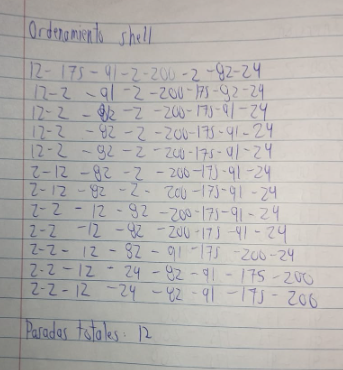 Ordenamiento shell
12- 175 - 91 - 2 - 200 - 2 - 82 - 24
12 - 2 - 91 - 2 - 200 - 175 - 82 - 24
12 - 2 - 82 - 2 - 200 - 175 - 91 - 24
12 - 2 - 82 - 2 - 200 - 175 - 91 - 24
12 - 2 - 82 - 2 - 200 - 175 - 91 - 24
2 - 12 - 82 - 2 - 200 - 175 - 91 - 24
2 - 12 - 82 - 2 - 200 - 175 - 91 - 24
2 - 2 - 12 - 82 - 200 - 175 - 91 - 24
2 - 2 - 12 - 82 - 200 - 175 - 91 - 24
2 - 2 - 12 - 82 - 91 - 175 - 200 - 24
2 - 2 - 12 - 24 - 82 - 91 - 175 - 200
2 - 2 - 12 - 24 - 82 - 91 - 175 - 200
Paradas totales: 12